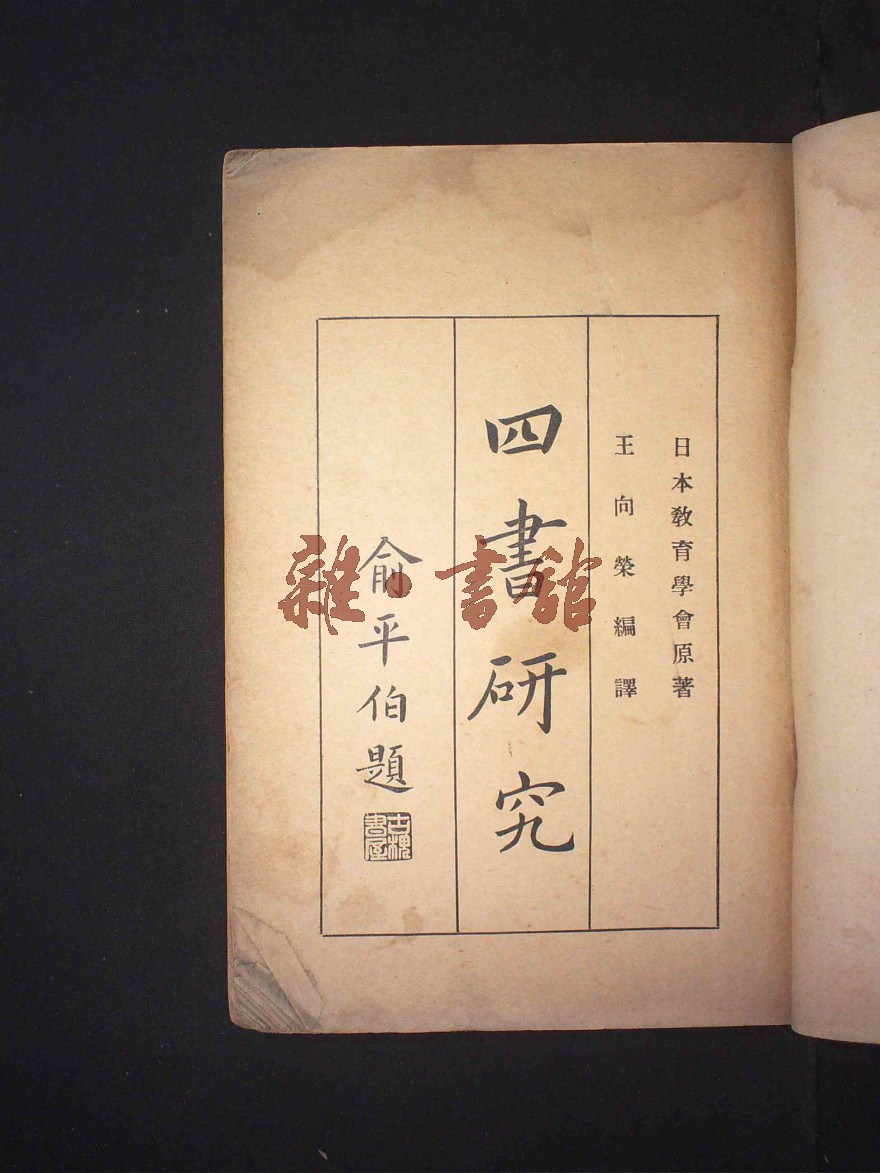 日本教育學會原著
王向榮編譯
四書研究
俞平伯題
古槐書屋
雜·書館